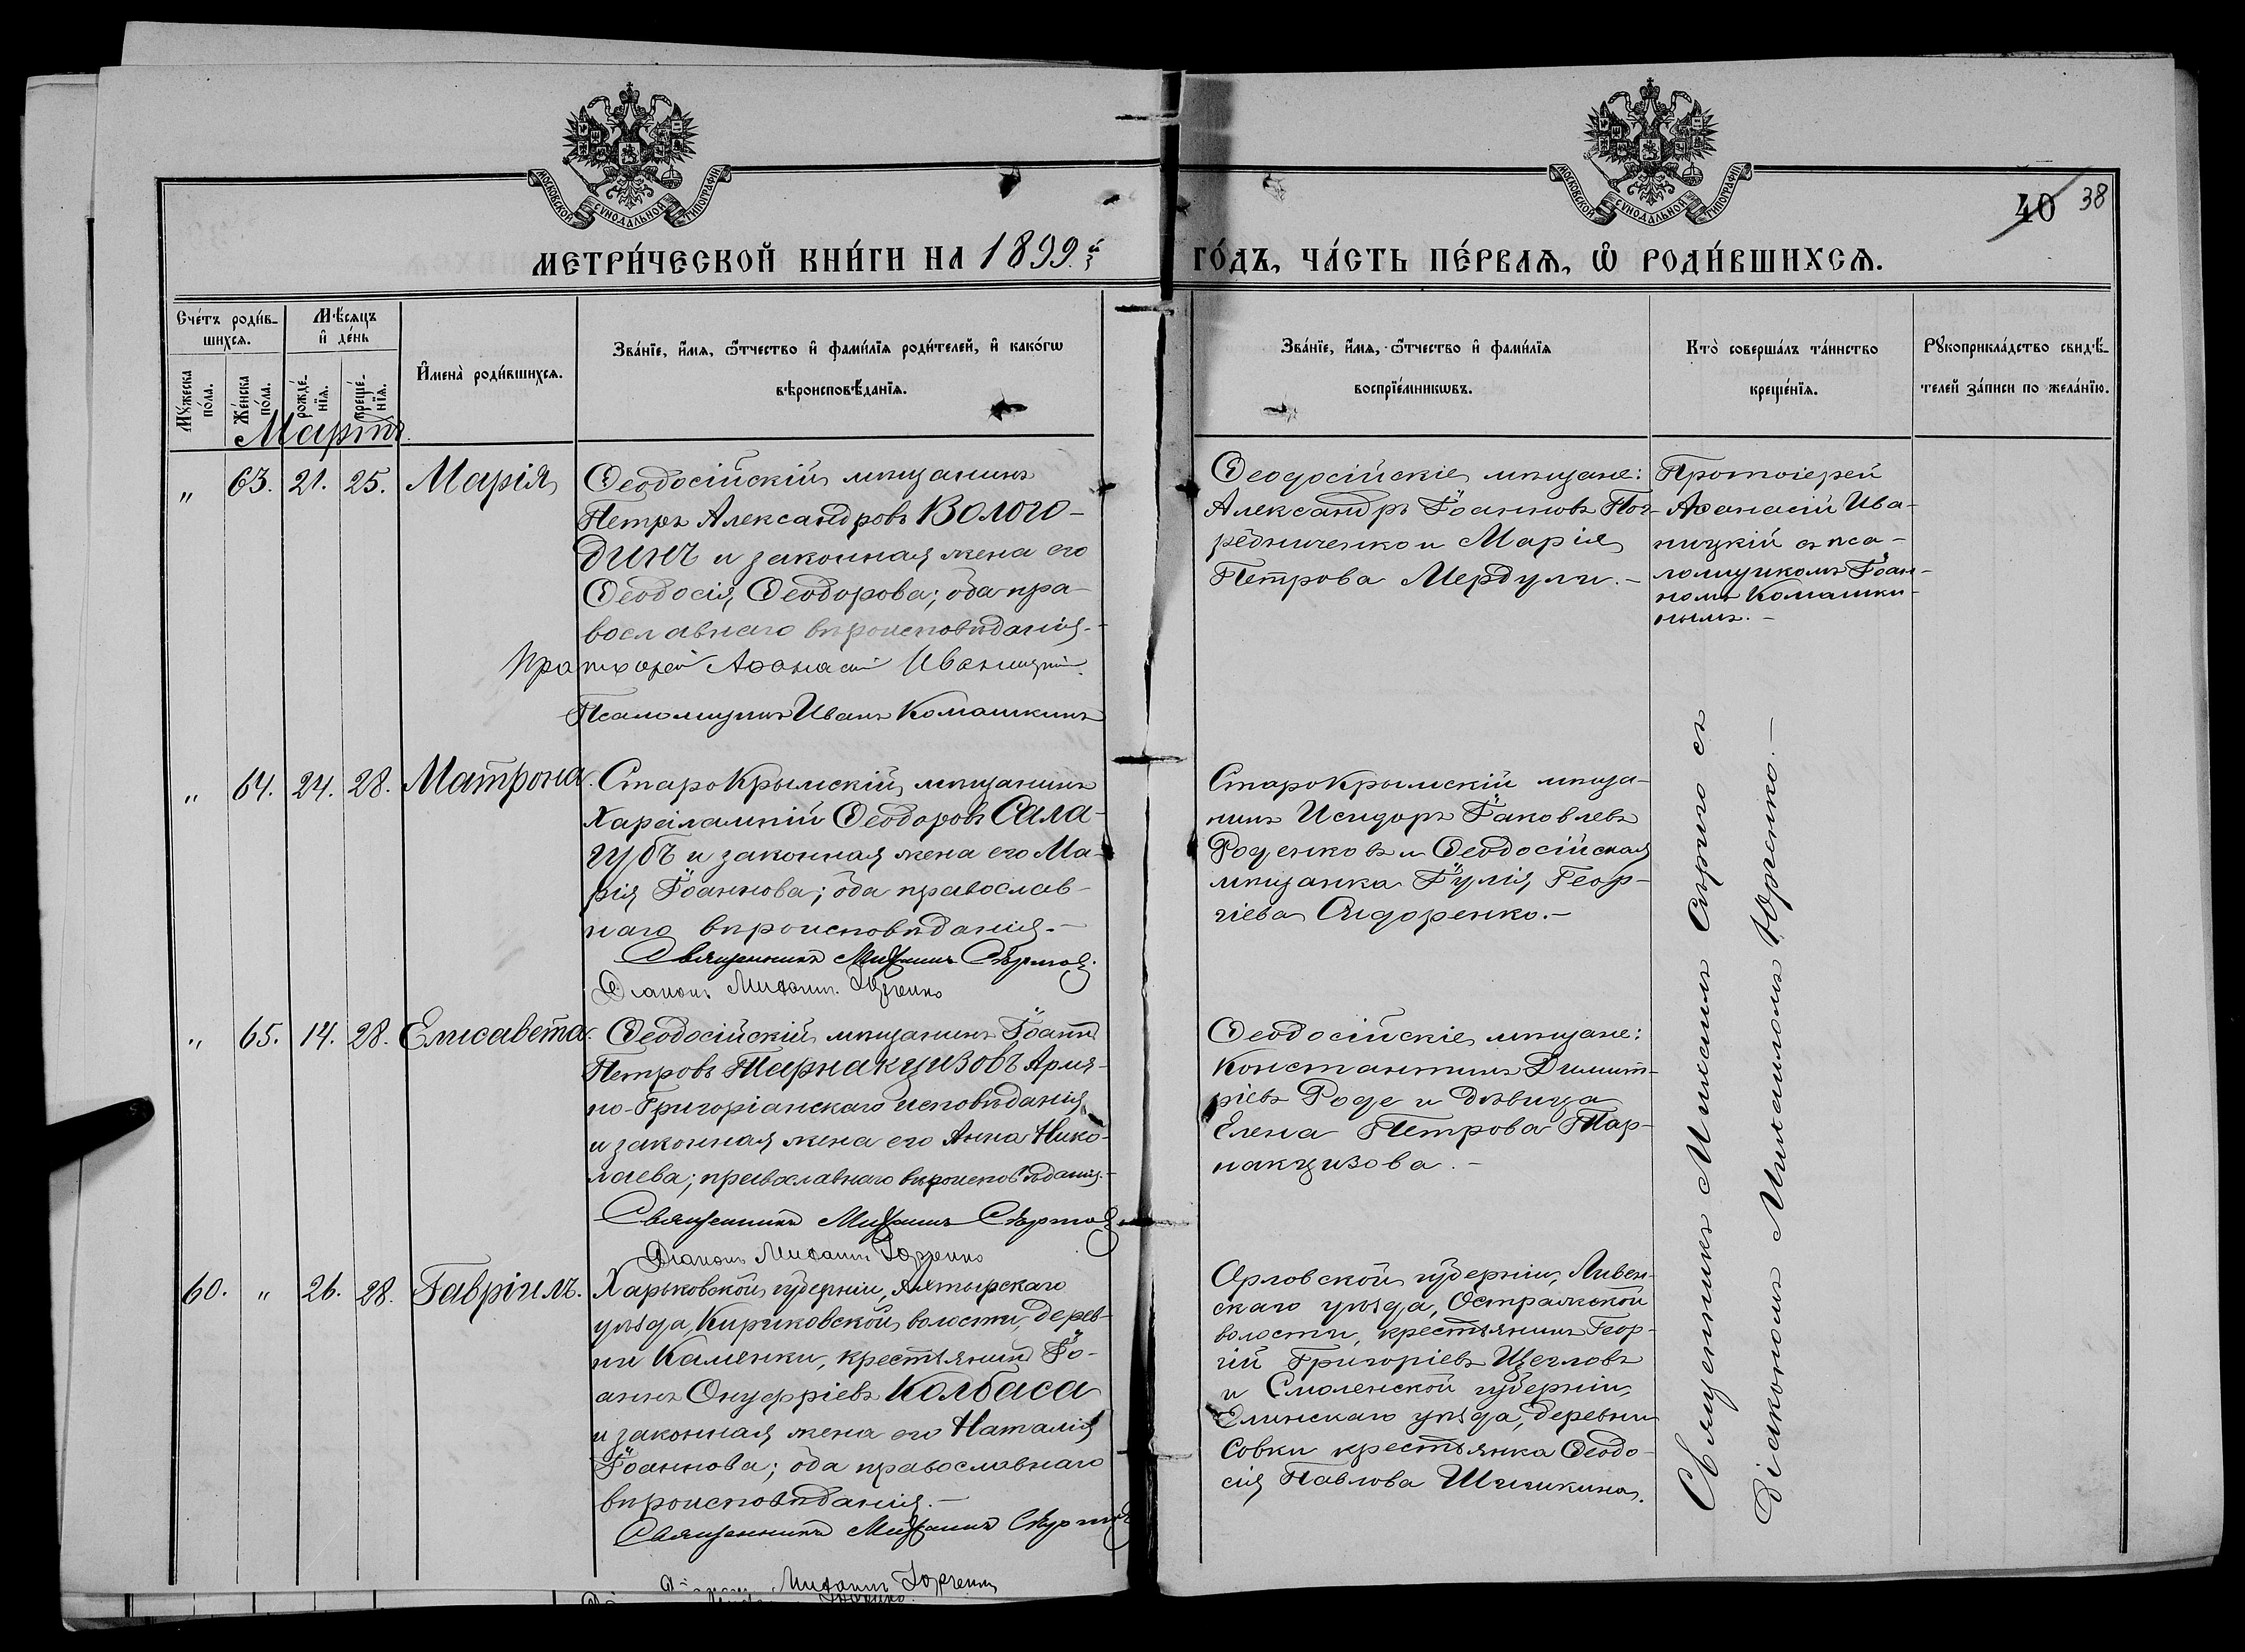 МОСКОВСКОЙ СѴНОДАЛЬНОЙ ТИПОГРАФІИ
МОСКОВСКОЙ СѴНОДАЛЬНОЙ ТИПОГРАФІИ
40 38
МЕТРИ́ЧЕСКОЙ КНИ́ГИ НА 1899й
ГО́ДЪ, ЧА́СТЬ ПЕ́РВАѦ, Ѡ҆ РОДИ́ВШИХСѦ.
Сче́тъ роди́в-
шихсѧ.
Мꙋ́жеска по́ла.
Же́нска по́ла.
Мѣ́сѧцъ
и҆ де́нь
рожде́-
нїѧ.
креще́-
нїѧ.
И҆мена̀ роди́вшихсѧ.
Зва́нїе, и҆́мѧ, ѻ҆́тчество и҆ фами́лїѧ роди́телей, и҆ како́гѡ
вѣроисповѣ́данїѧ.
Зва́нїе, и҆́мѧ, ѻ҆́тчество и҆ фами́лїѧ
воспрїе́мникѡвъ.
Кто̀ соверша́лъ та́инство
креще́нїѧ.
Рꙋкоприкла́дство свидѣ́-
телей за́писи по жела́нїю.
Мартъ.
" 63. 21. 25. Марія
Ѳеодосійскій мѣщанинъ
Петръ Александровъ Волого-
динъ и законная жена его
Ѳеодосія Ѳеодорова; оба пра-
вославнаго вѣроисповѣданія.-
Протоіерей Аѳанасій Иваницкій.
Псаломщикъ Иванъ Комашкинъ
Ѳеодосійскіе мѣщане:
Александръ Іоанновъ
и Марія
Петрова Мердули.-
Протоіерей
Аѳанасій Ива-
ницкій съ пса-
ломщикомъ Іоан-
номъ Комашки-
нымъ.-
" 64. 24. 28. Матрона.
СтароКрымскій мѣщанинъ
Харалампій Ѳеодоровъ Сала-
губъ и законная жена его Ма-
рія Іоаннова; оба православ-
наго вѣроисповѣданія.-
Священникъ Михаилъ
Діаконъ Михаилъ Юрченко
СтароКрымскій мѣща-
нинъ Исидоръ Іаковлевъ
Роденковъ и Ѳеодосійская
мѣщанка Іулія Геор-
гіева Сидоренко.-
Священникъ Михаилъ съ
Діакономъ Михаиломъ Юрченко.-
" 65. 14. 28. Елисавета.
Ѳеодосійскій мѣщанинъ Іоаннъ
Петровъ Тарнакцизовъ Армя-
но-Григоріанскаго исповѣданія
и законная жена его Анна Нико-
лаева; православнаго вѣроисповѣданія.-
Священникъ Михаилъ
Діаконъ Михаилъ Юрченко
Ѳеодосійскіе мѣщане:
Константинъ Димит-
ріевъ Роде и дѣвица
Елена Петрова Тар-
накцизова.-
60. " 26. 28. Гавріилъ.
Харьковской губерніи, Ахтырскаго
уѣзда, Кириковской волости, дерев-
ни Каменки, крестьянинъ Іо-
аннъ Онуфріевъ Колбаса
и законная жена его Наталія
Іоаннова; оба православнаго
вѣроисповѣданія.-
Священникъ Михаилъ
Діаконъ Михаилъ Юрченко
Орловской губерніи, Ливен-
скаго уѣзда,
волости, крестьянинъ Геор-
гій Григоріевъ Щегловъ
и Смоленской губерніи,
Елинскаго уѣзда, деревни
Совки крестьянка Ѳеодо-
сія Павлова Шишкина.